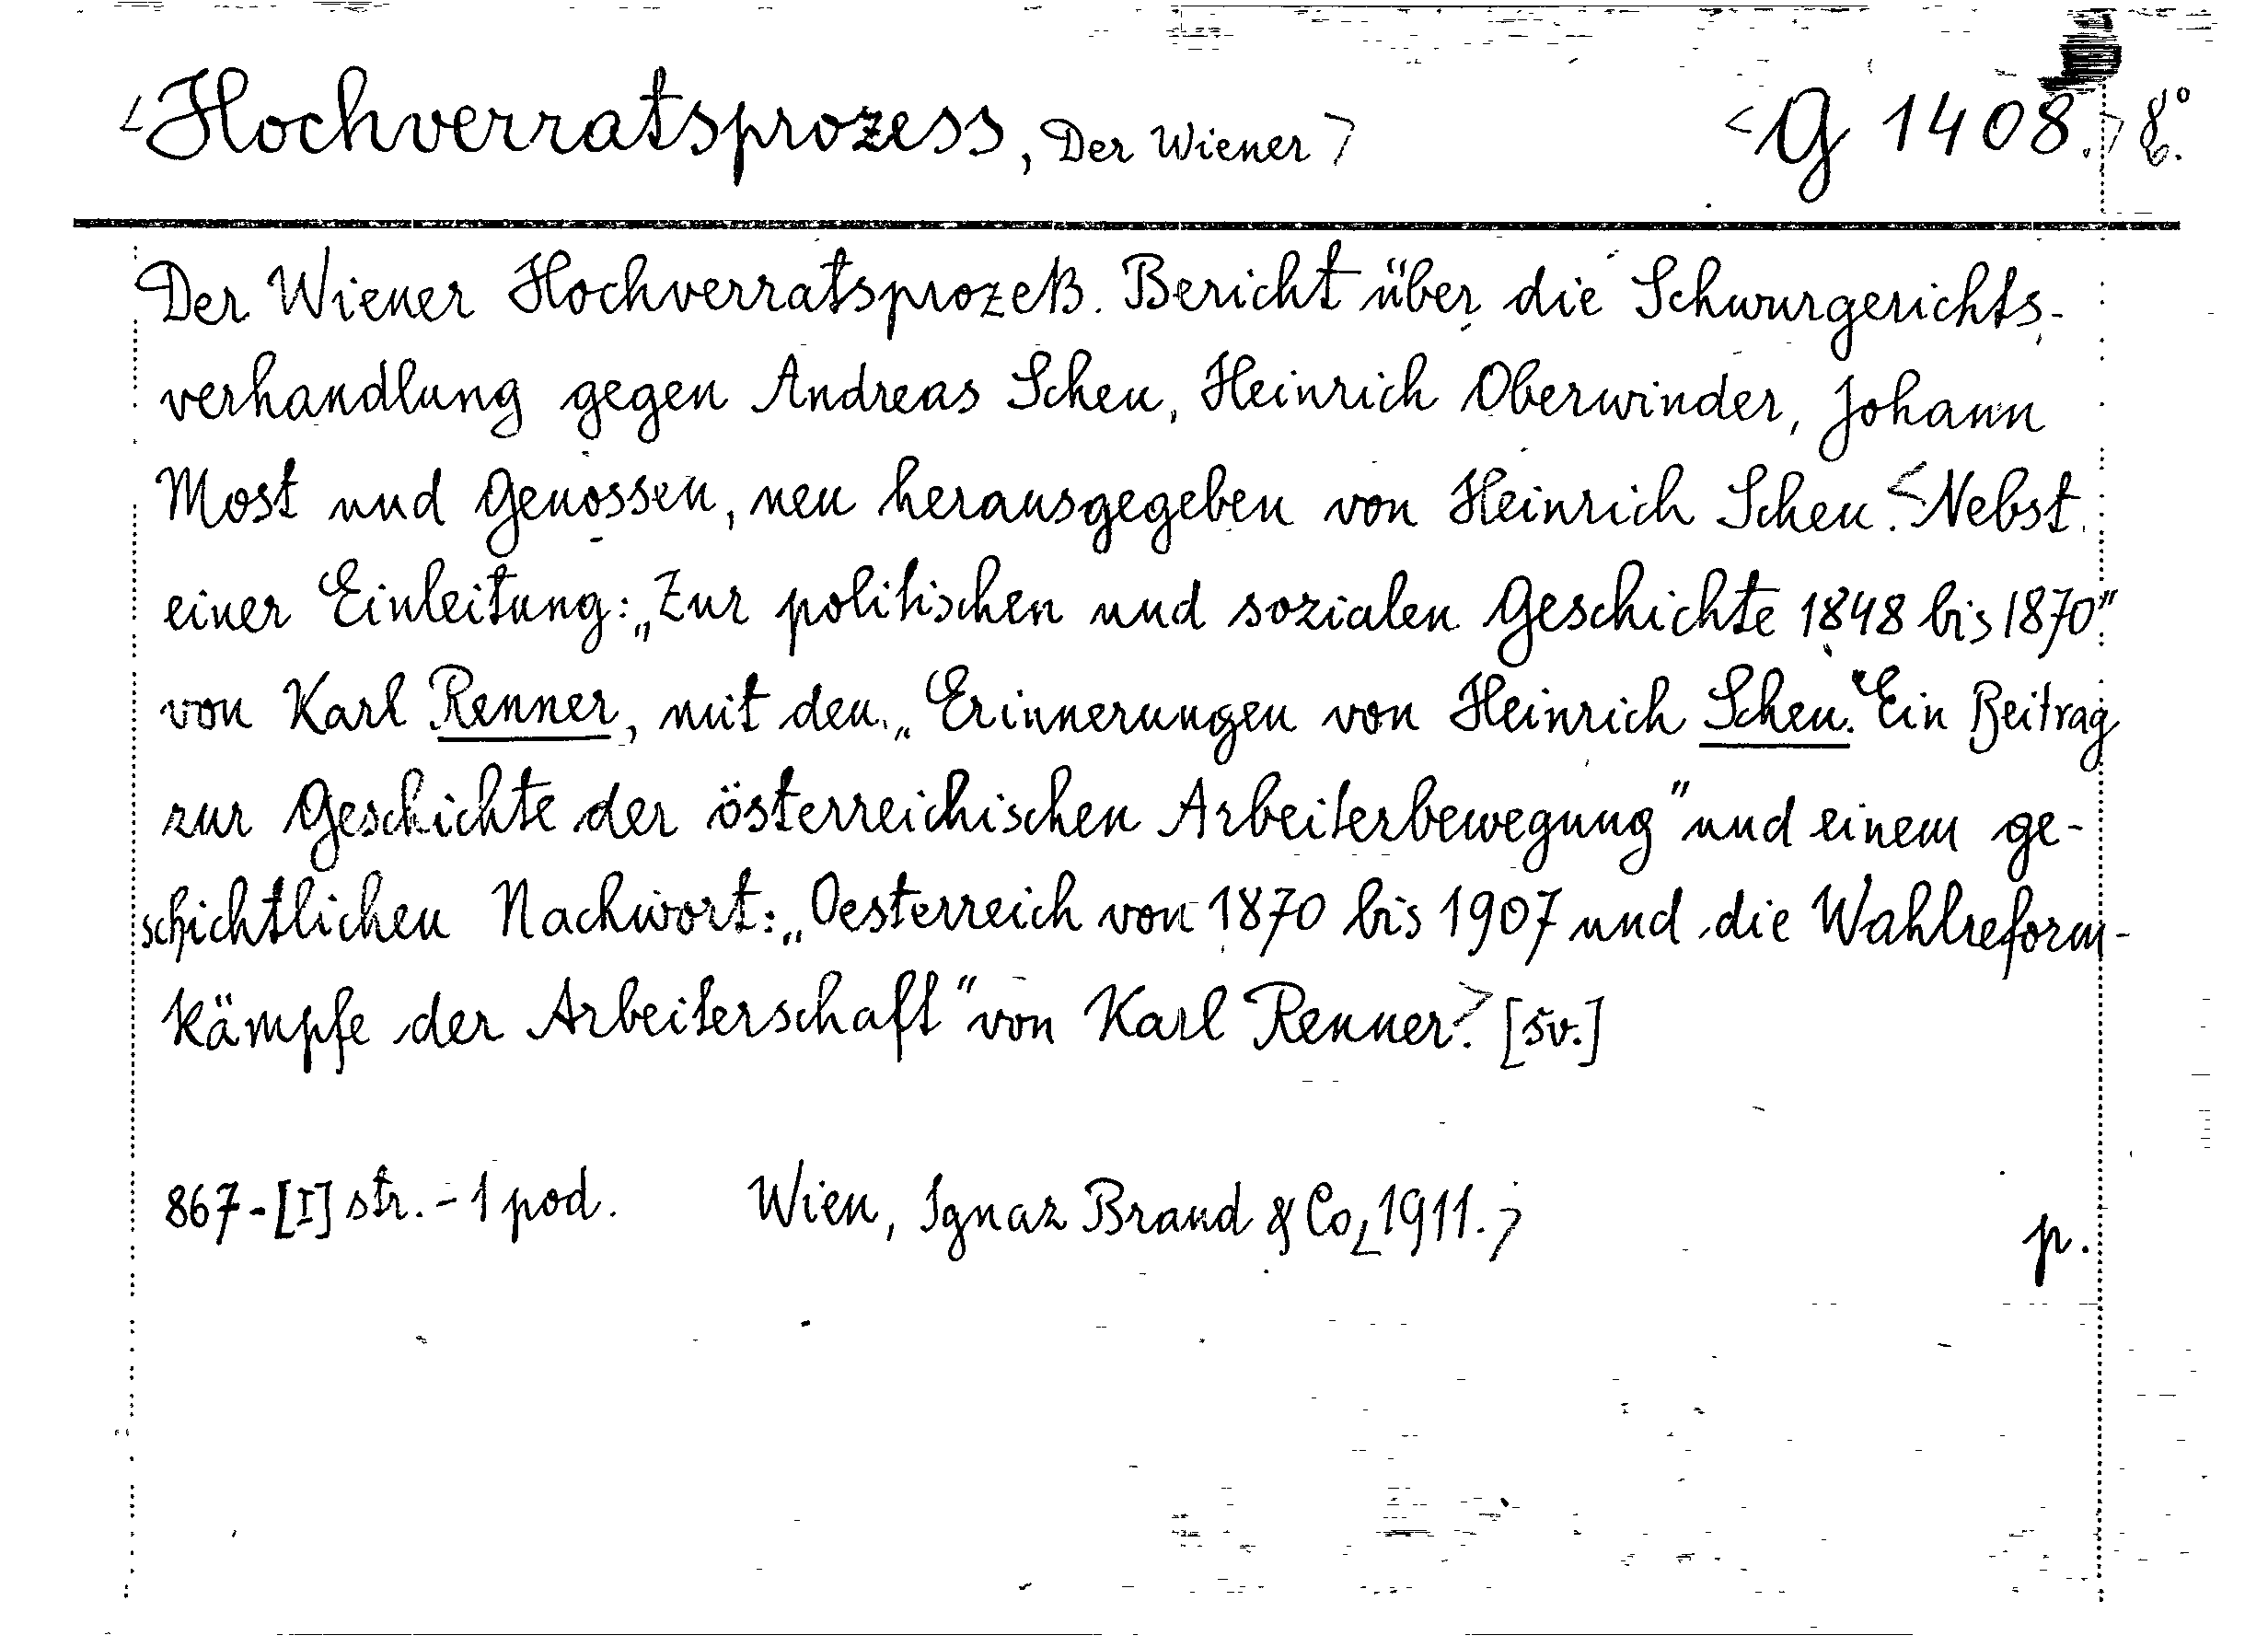 <Hochverratsprozess, Der Wiener> <G 1408.> 8°
Der Wiener Hochverratsprozeß. Bericht über die Schwurgerichts-
verhandlung gegen Andreas Scheu, Heinrich Oberwinder, Johann
Most und Genossen, neu herausgegeben von Heinrich Scheu. <Nebst
einer Einleitung: „Zur politischen und sozialen Geschichte 1848 bis 1870"
von Karl Renner, mit den „Erinnerungen von Heinrich Scheu. Ein Beitrag
zur Geschichte der österreichischen Arbeiterbewegung" und einem ge-
schichtlichen Nachwort: „Oesterreich von 1870 bis 1907 und die Wahlreform-
kämpfe der Arbeiterschaft" von Karl Renner.> [5v.]
867-[I] str. - 1 pod. Wien, Ignaz Brand & Co, <1911.>
p.